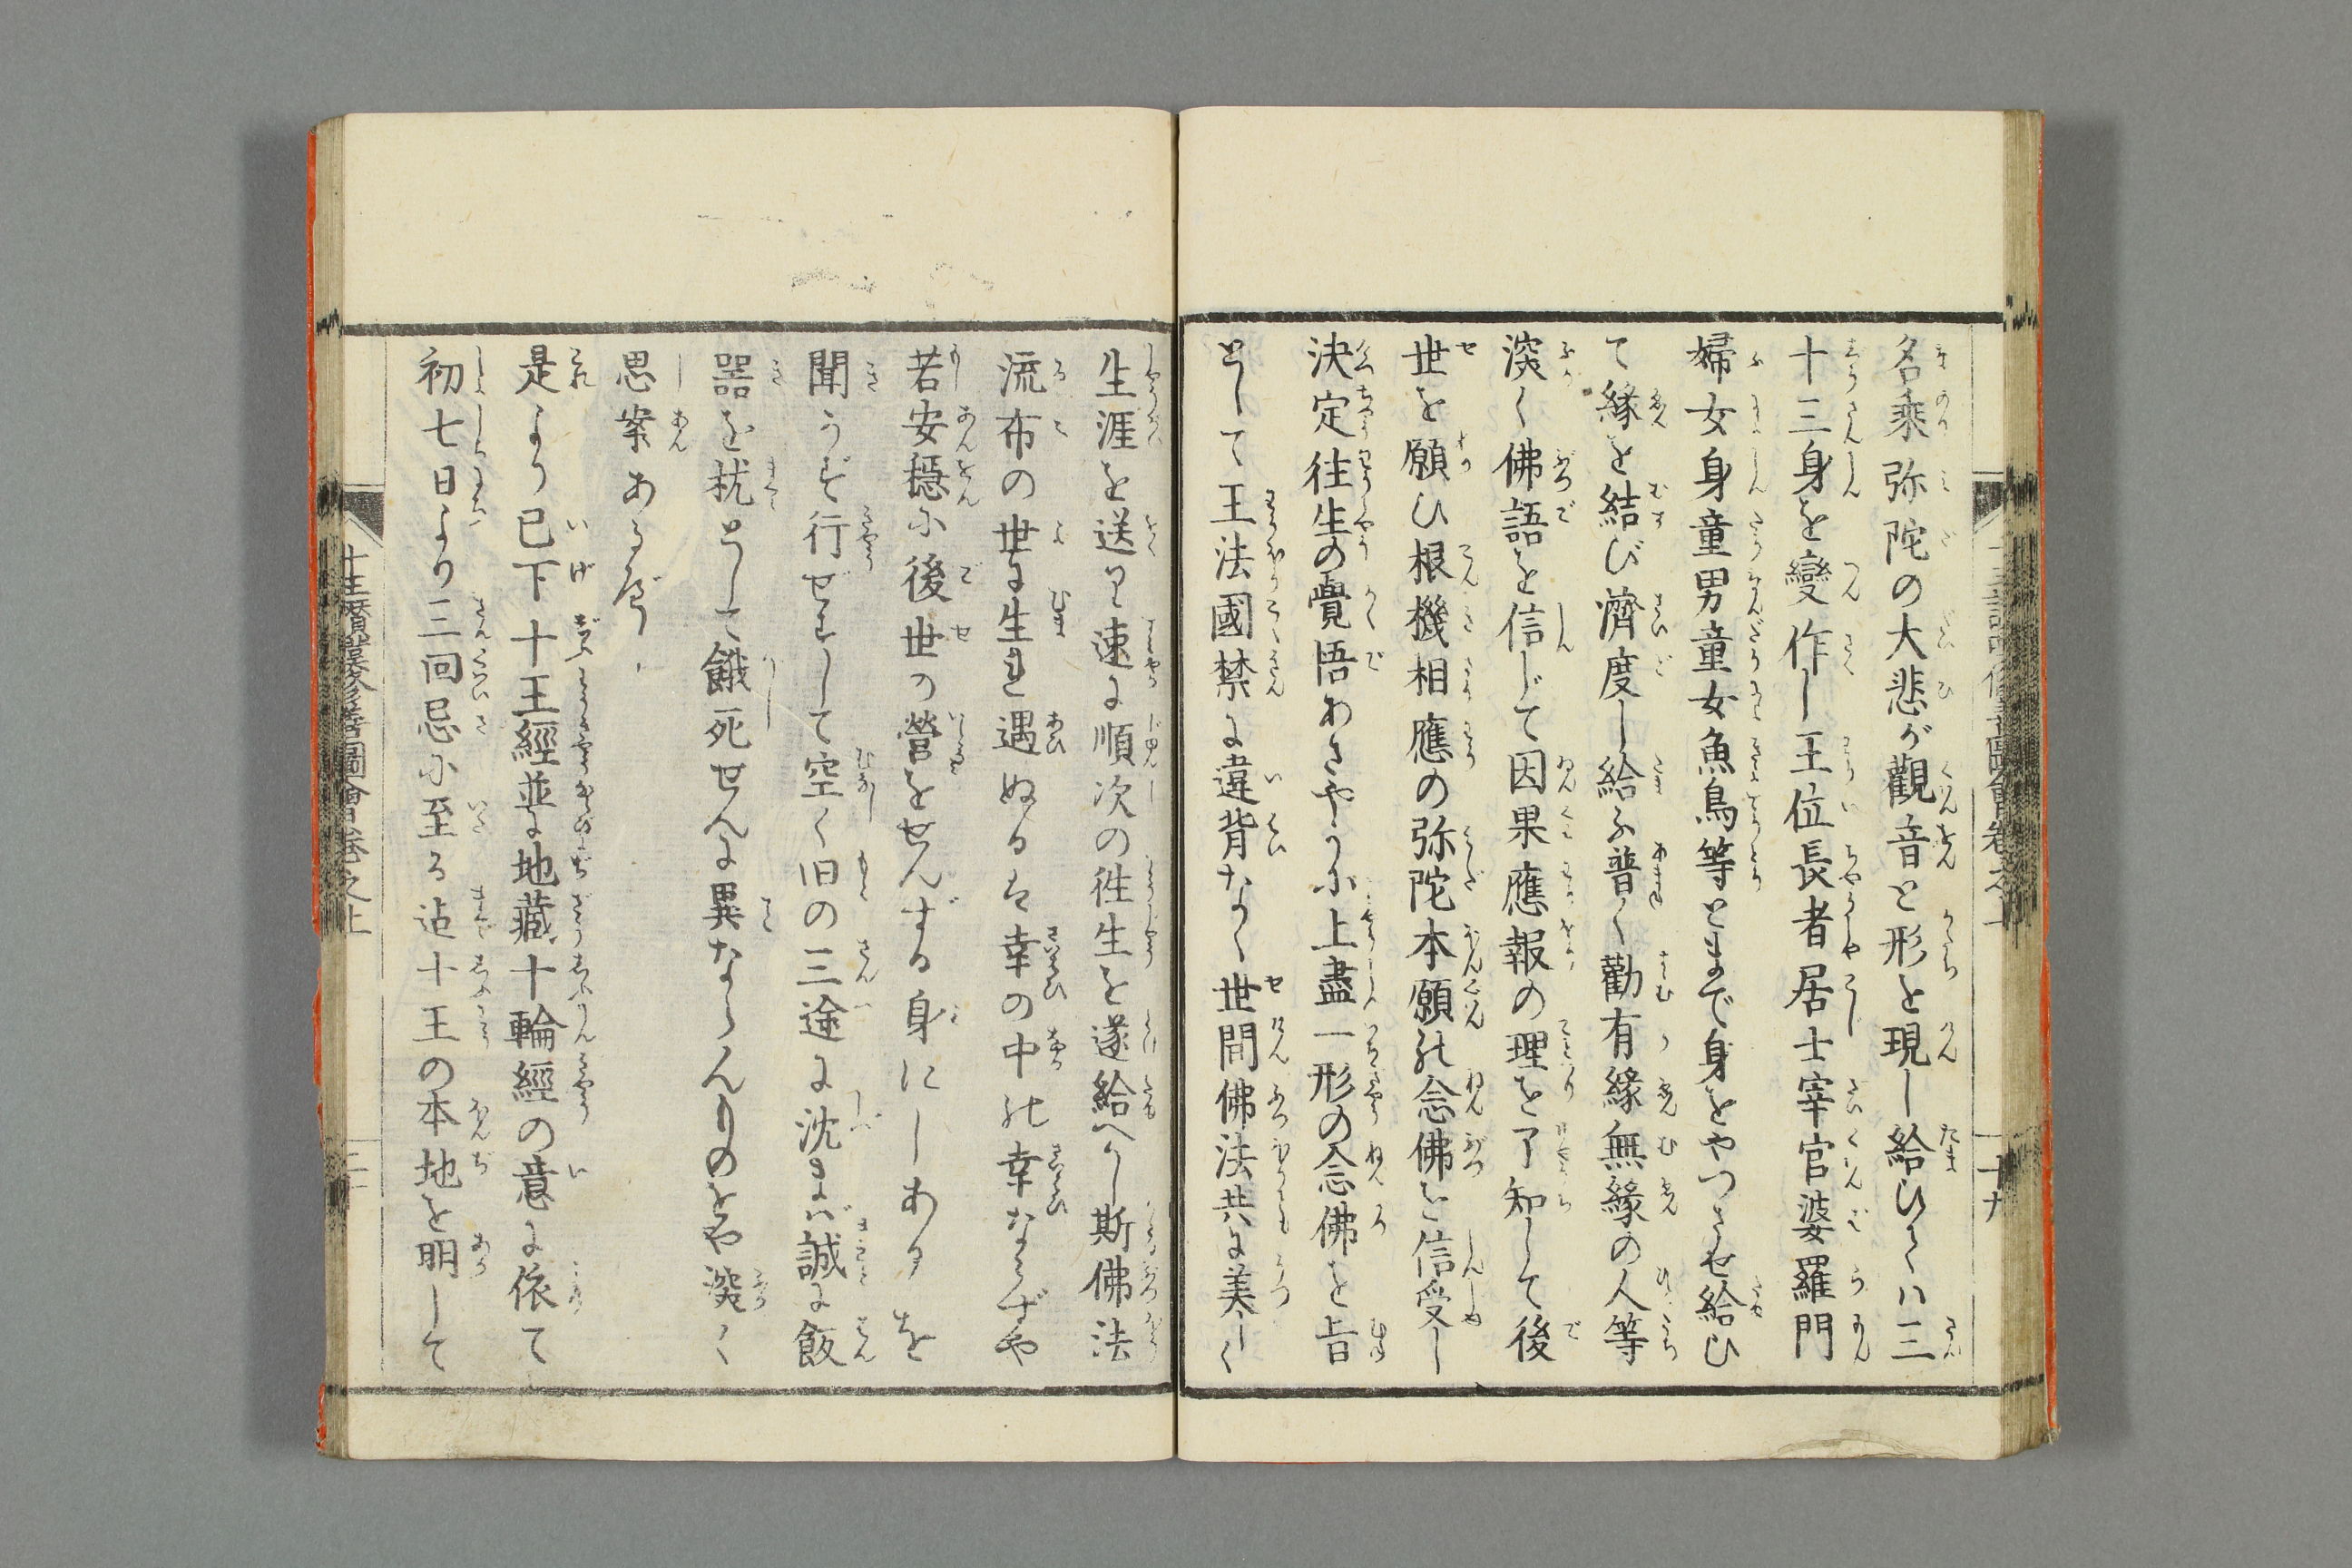 名乘弥陀の大悲が觀音と形を現し給ひてハ三
十三身を變作し王位長者居士宰官婆羅門
婦女身童男童女魚鳥等とまで身をやつさせ給ひ
て縁を結び濟度し給ふ普く勸有縁無縁の人等
深く佛語を信じて因果應報の理を了知して後
世を願ひ根機相應の弥陀本願の念佛を信受し
決定往生の覺悟わさやかに上盡一形の念佛を旨
として王法國禁に違背なく世間佛法共に美しく
生涯を送り速に順次の徃生を遂給へかし斯佛法
流布の世に生れ遇ぬるは幸の中の幸ならずや
若安穏に後世の營をせんずる身にしあるを
聞うず行ぜずして空く旧の三途に沈まバ誠に飯
器を枕として餓死せんに異ならんものをや深く
思案あるべし
是より已下十王經並に地藏十輪經の意に依て
初七日より三回忌に至る迠十王の本地を明して
十王讃嘆修善圖會卷之上